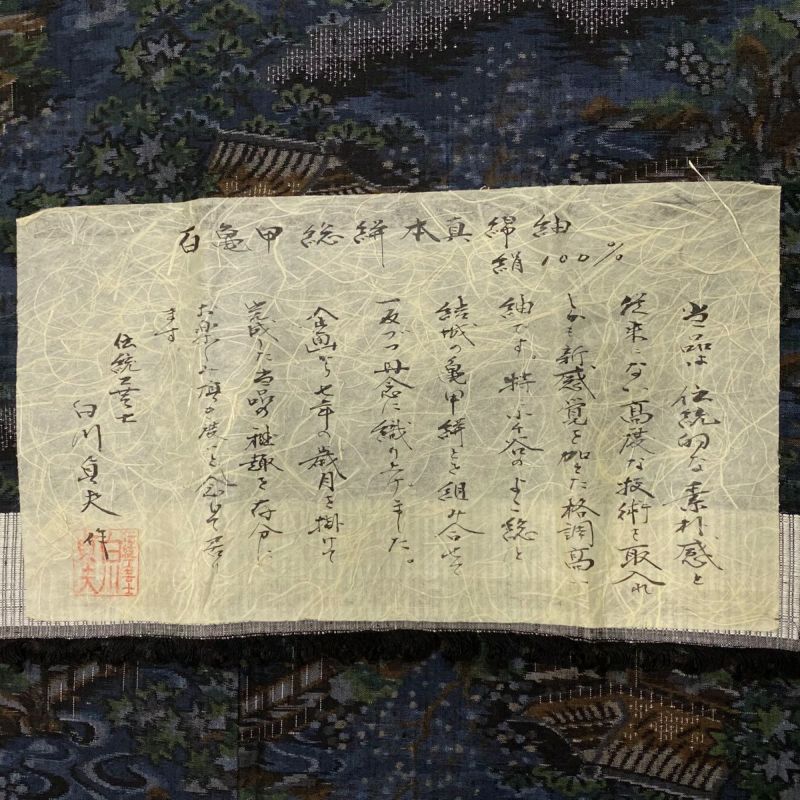 百亀甲総絣本真綿紬
絹100%
当品は伝統的な素朴感と
従来にない高度な技術を取入れ
しかも新感覚を加えた格調高い
紬です。特に小千谷のよこ総と
結城の亀甲絣とを組み合せて
一反づつ丹念に織り上げました。
企画から七年の歳月を掛けて
完成した当品の雅趣を存分に
お楽しみ頂の度いと念じて居り
ます
伝統工芸士
白川貞夫 作
伝統工芸士
白川
貞夫